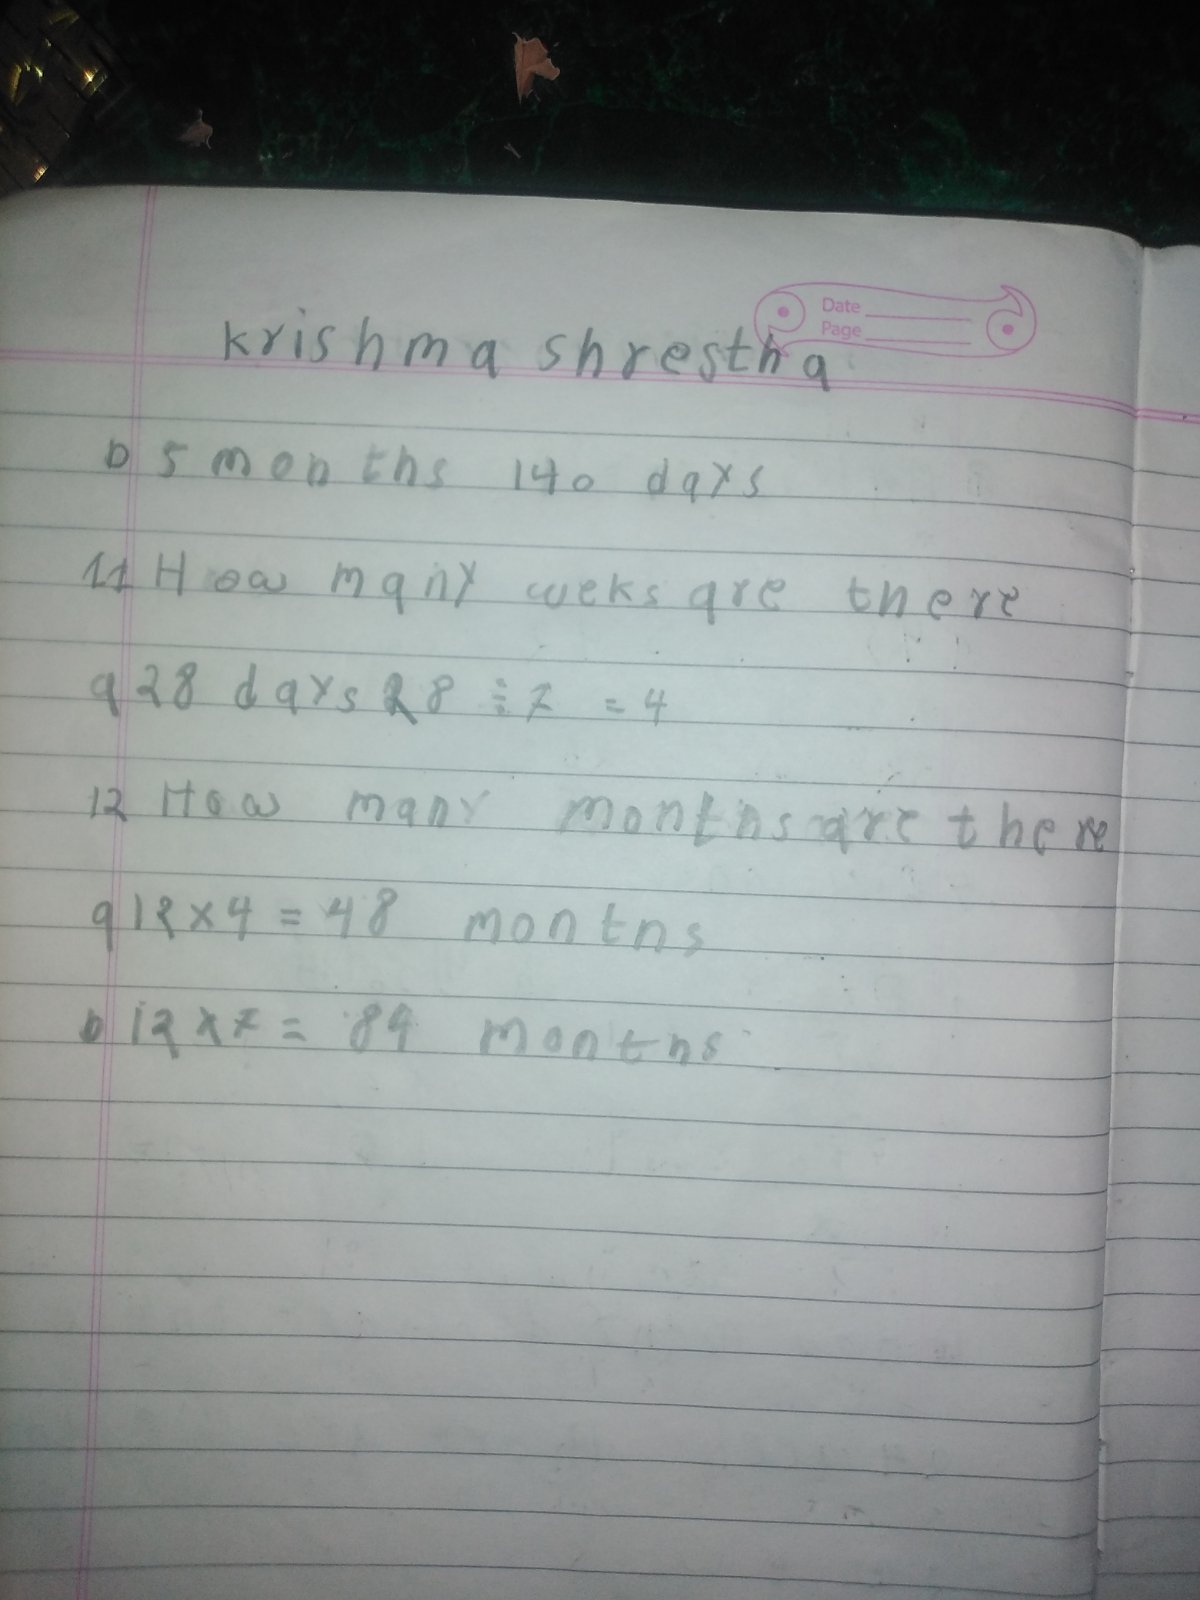 Date
Page
krishma shrestha
b 5 months 140 days
11 How many weks are there
a 28 days 28 ÷ 7 = 4
12 How many months are there
a 12 x 4 = 48 months
b 12 x 7 = 84 months